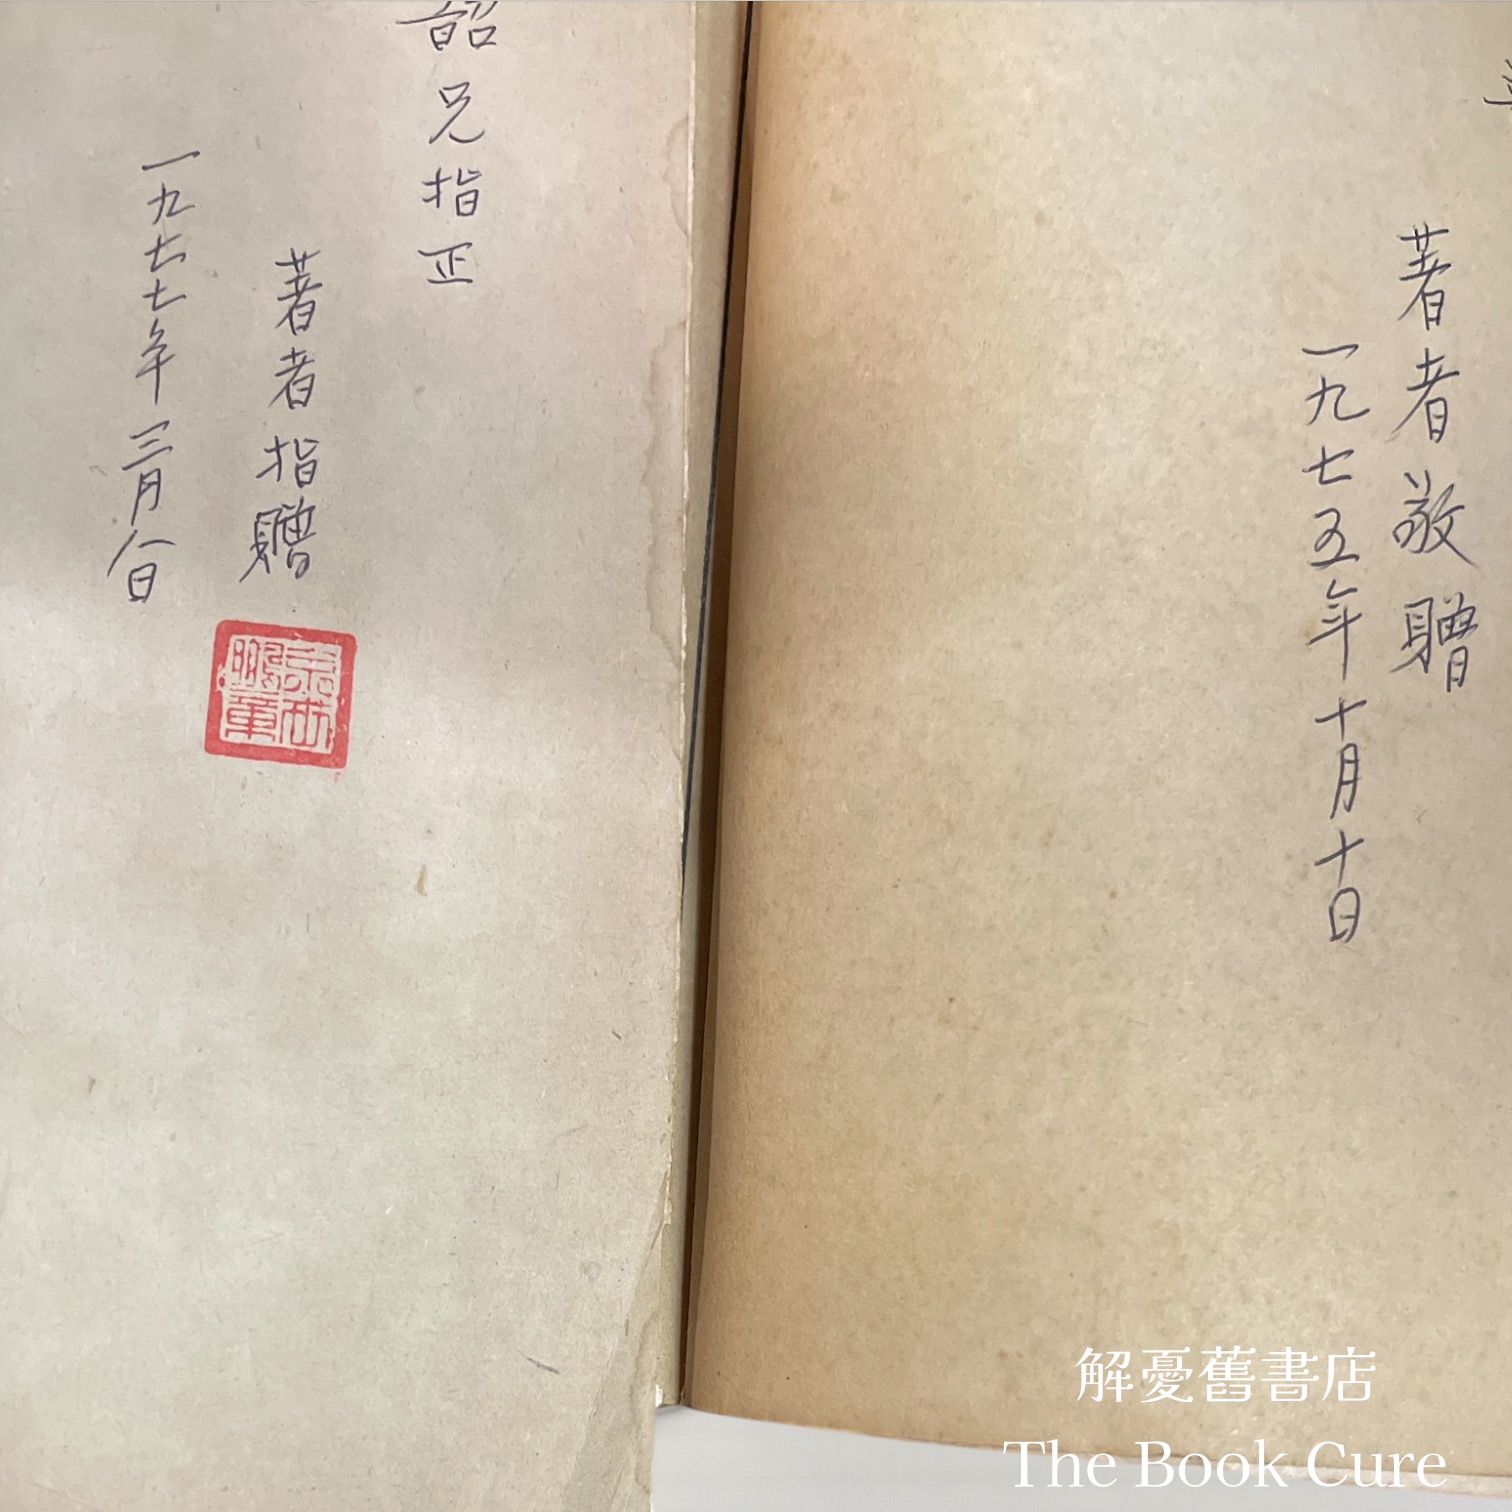 著者敬贈
一九七五年十月十日
韶兄指正
著者指贈
一九七七年三月八日
解憂舊書店
The Book Cure